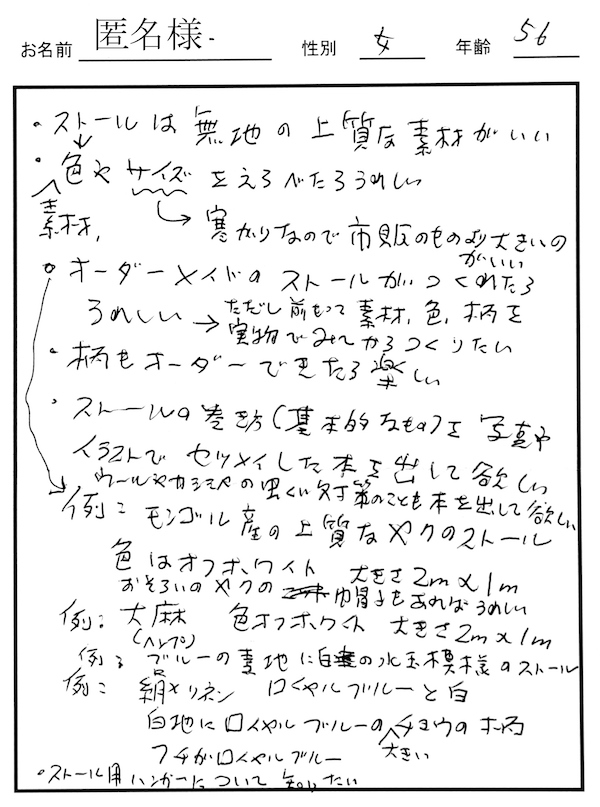 お名前 匿名様 性別 女 年齢 56
・ストールは無地の上質な素材がいい
・色やサイズをえらべたらうれしい
素材、
→寒がりなので市販のものより大きいの
がいい
・オーダーメイドのストールがつくれたら
うれしい → ただし前もって素材、色、柄を
実物でみてからつくりたい
・柄もオーダーできたら楽しい
・ストールの巻き方(基本的なもの)を写真や
イラストでセツメイした本を出して欲しい
ウールやカシミヤの虫くい対策のことも本を出して欲しい
例:モンゴル産の上質なヤクのストール
色はオフホワイト 大きさ2m×1m
おそろいのヤクの帽子もあればうれしい
例:大麻 色オフホワイト 大きさ2m×1m
(ヘンプ)
例:ブルーの麦地に白の水玉模様のストール
例:絹×リネン ロイヤルブルーと白
白地にロイヤルブルーのチョウの柄
大きい
フチがロイヤルブルー
・ストール用ハンガーについて知りたい